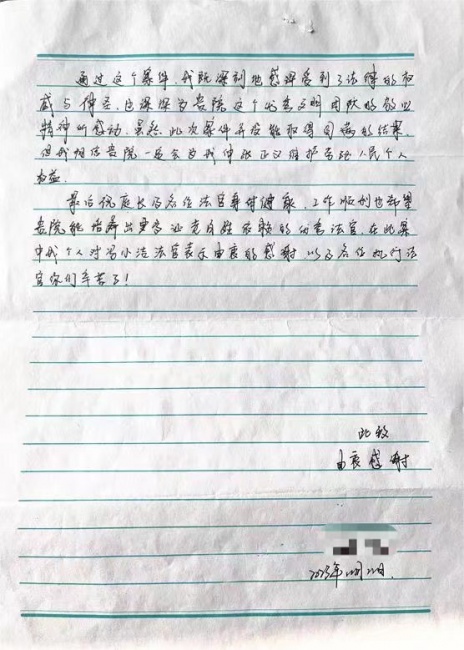 通过这个案件，我既深刻地感受到了法律的权
威与伟大，也深深为贵院这个优秀文明团队的敬业
精神所感动。虽然此次案件并没能取得圆满的结果，
但我相信贵院一定会为我伸张正义维护劳动人民个人
权益。
最后祝庭长及各位法官身体健康，工作顺利也希望
贵院能培养出更多让老百姓依赖的优秀法官，在此案
中我个人对冯小洁法官表示由衷的感谢，以及各位执行法
官你们辛苦了！
此致
由衷感谢
2023年